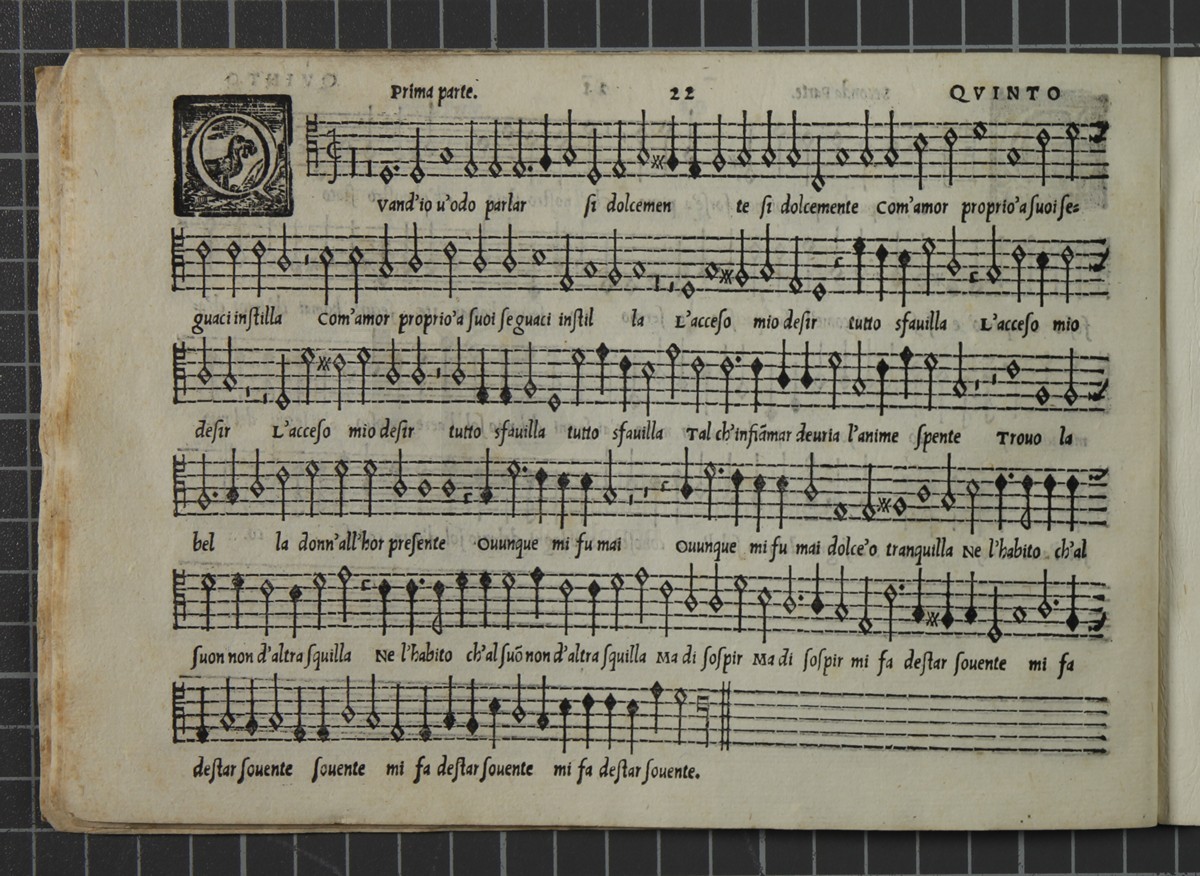 Prima parte. 22 QVINTO
QVand'io u'odo parlar ſi dolcemen te ſi dolcemente Com'amor proprio'a ſuoi ſe=
guaci inſtilla Com'amor proprio'a ſuoi ſeguaci inſtil la L'acceſo mio deſir tutto sfauilla L'acceſo mio
deſir L'acceſo mio deſir tutto sfauilla tutto sfauilla Tal ch'infiãmar deuria l'anime ſpente Trouo la
bel la donn'all'hor preſente Ouunque mi fu mai Ouunque mi fu mai dolce'o tranquilla Ne l'habito ch'al
ſuon non d'altra ſquilla Ne l'habito ch'al ſuõ non d'altra ſquilla Ma di ſoſpir Ma di ſoſpir mi fa deſtar ſouente mi fa
deſtar ſouente ſouente mi fa deſtar ſouente mi fa deſtar ſouente.